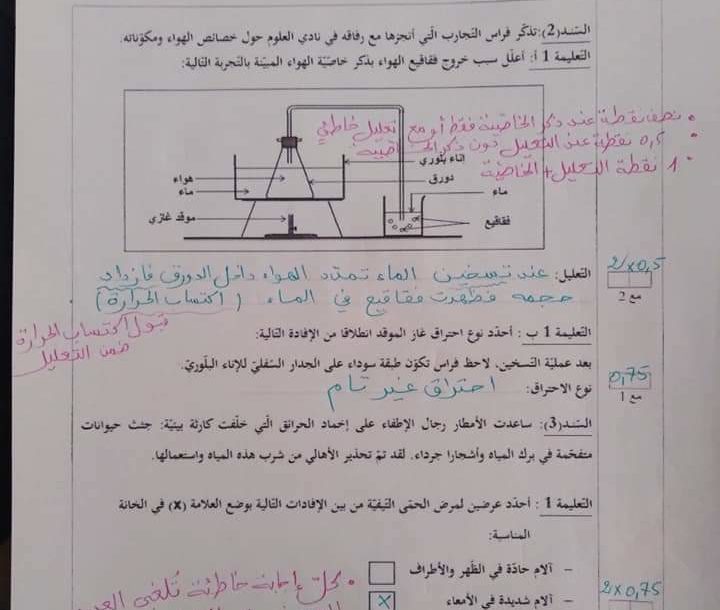 السّند(2):تذكّر فراس التّجارب الّتي أنجزها مع رفاقه في نادي العلوم حول خصائص الهواء ومكوّناته.
التعليمة 1 أ: أعلّل سبب خروج فقاقيع الهواء بذكر خاصّيّة الهواء المبيّنة بالتّجربة التّالية:
• نصف نقطة عند ذكر الخاصّيّة فقط أو مع تعليل خاطئ
• 0,5 نقطة عند التعليل دون ذكر الخاصيّة
• 1 نقطة التعليل + الخاصّيّة
إناء بلّوري
دورق
هواء
ماء
ماء
موقد غازي
فقاقيع
التعليل: عند تسخين الماء تمدّد الهواء داخل الدورق فازداد
حجمه فظهرت فقاقيع في الماء (اكتساب الحرارة)
2×0,5
مع 2
قبول اكتساب الحرارة
ضمن التعليل
التعليمة 1 ب : أحدّد نوع احتراق غاز الموقد انطلاقا من الإفادة التّالية:
بعد عمليّة التسخين، لاحظ فراس تكوّن طبقة سوداء على الجدار السّفليّ للإناء البلّوريّ.
نوع الاحتراق: احتراق غير تام
0,75
مع 1
السّند(3): ساعدت الأمطار رجال الإطفاء على إخماد الحرائق الّتي خلّفت كارثة بيئيّة: جثث حيوانات
متفحّمة في برك المياه وأشجارا جرداء. لقد تمّ تحذير الأهالي من شرب هذه المياه واستعمالها.
التعليمة 1 : أحدّد عرضين لمرض الحمّى التّيفيّة من بين الإفادات التّالية بوضع العلامة (x) في الخانة
المناسبة:
– آلام حادّة في الظّهر والأطراف
– آلام شديدة في الأمعاء X
2×0,75
• كلّ إجابة خاطئة تُلغي